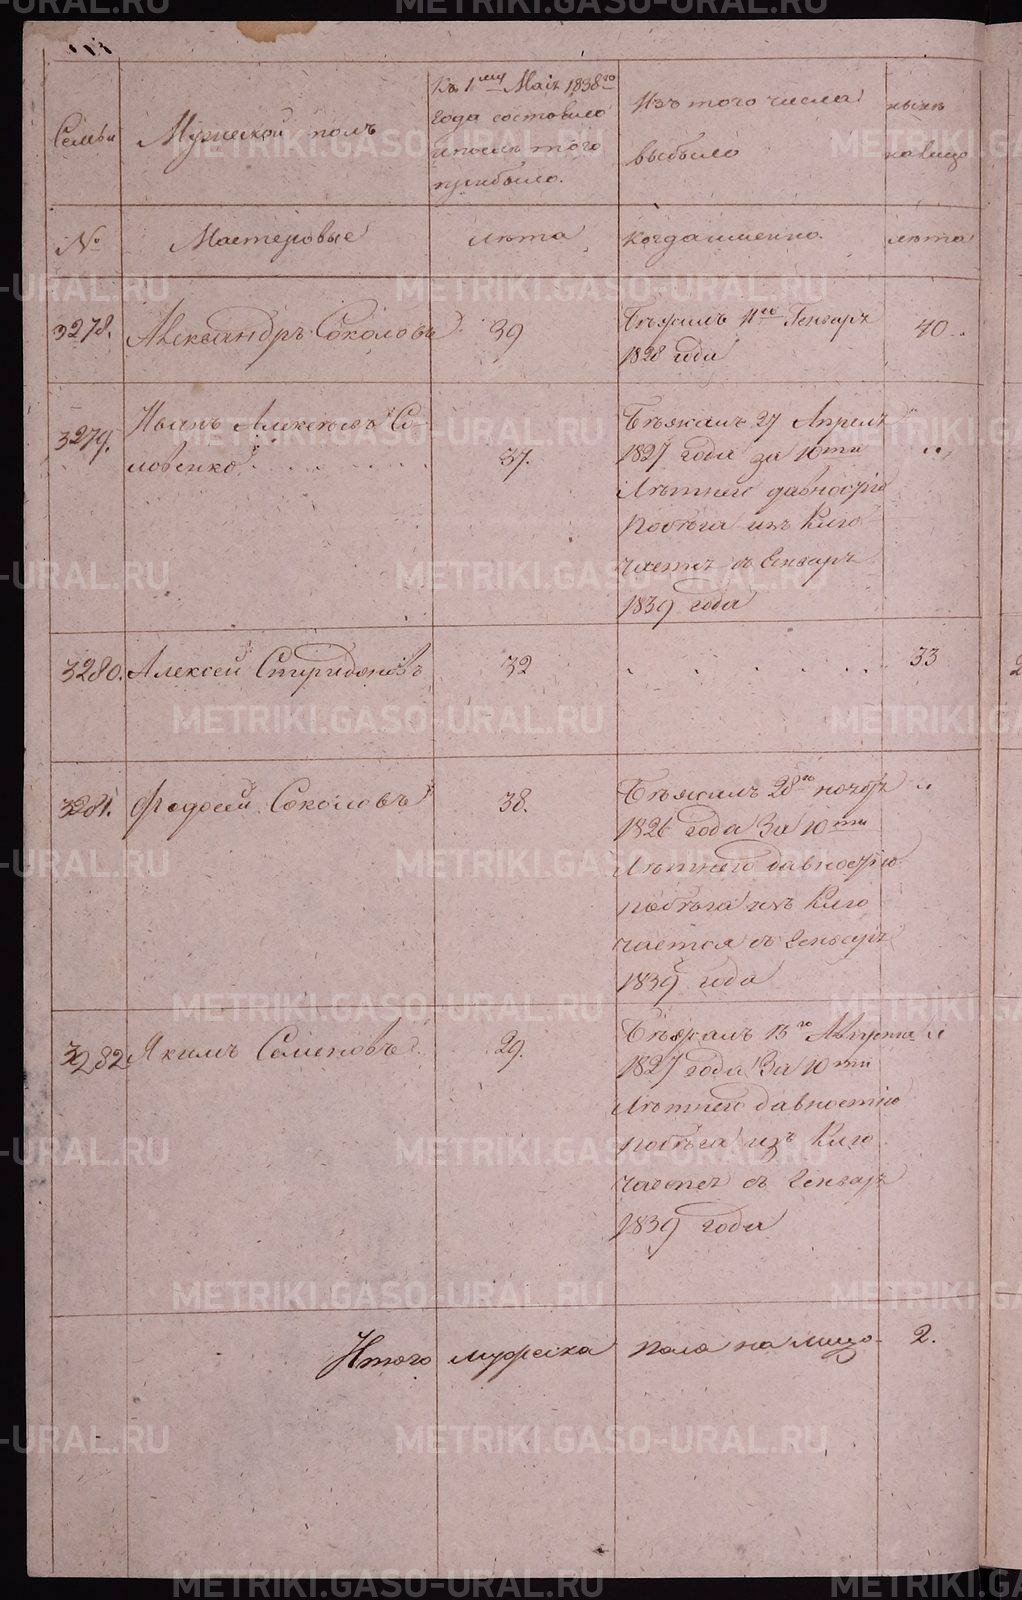 Семьи
Мужеской полъ
Къ 1му Маія 1838го
года состояло
и после того
прибыло.
Изъ того числа
выбыло
ныне
на лицо
№
Мастеровые
лѣта
когда именно.
лѣта
3278.
Александръ Соколовъ
39
Бѣжалъ 11го Генваря
1828 года
40.
3279.
Иванъ Алексѣевъ Со-
ловенко
37.
Бѣжалъ 27 Апреля
1827 года за 10ти
Лѣтнею давностію
побѣга изъ
чается въ Генваре
1839 года
3280.
Алексей Спиридоновъ
32
33
3281.
Федосей Соколовъ
38.
Бѣжалъ 28го ноября
1826 года За 10ти
Лѣтнею давностію
побѣга изъ
чается въ Генваре
1839 года
3282
Якимъ Семеновъ
29.
Бѣжалъ 15го Августа
1827 года За 10ти
Лѣтнею давностію
побѣга изъ
чается въ Генваре
1839 года
Итого мужеска пола на лицо
2.
METRIKI.GASO-URAL.RU